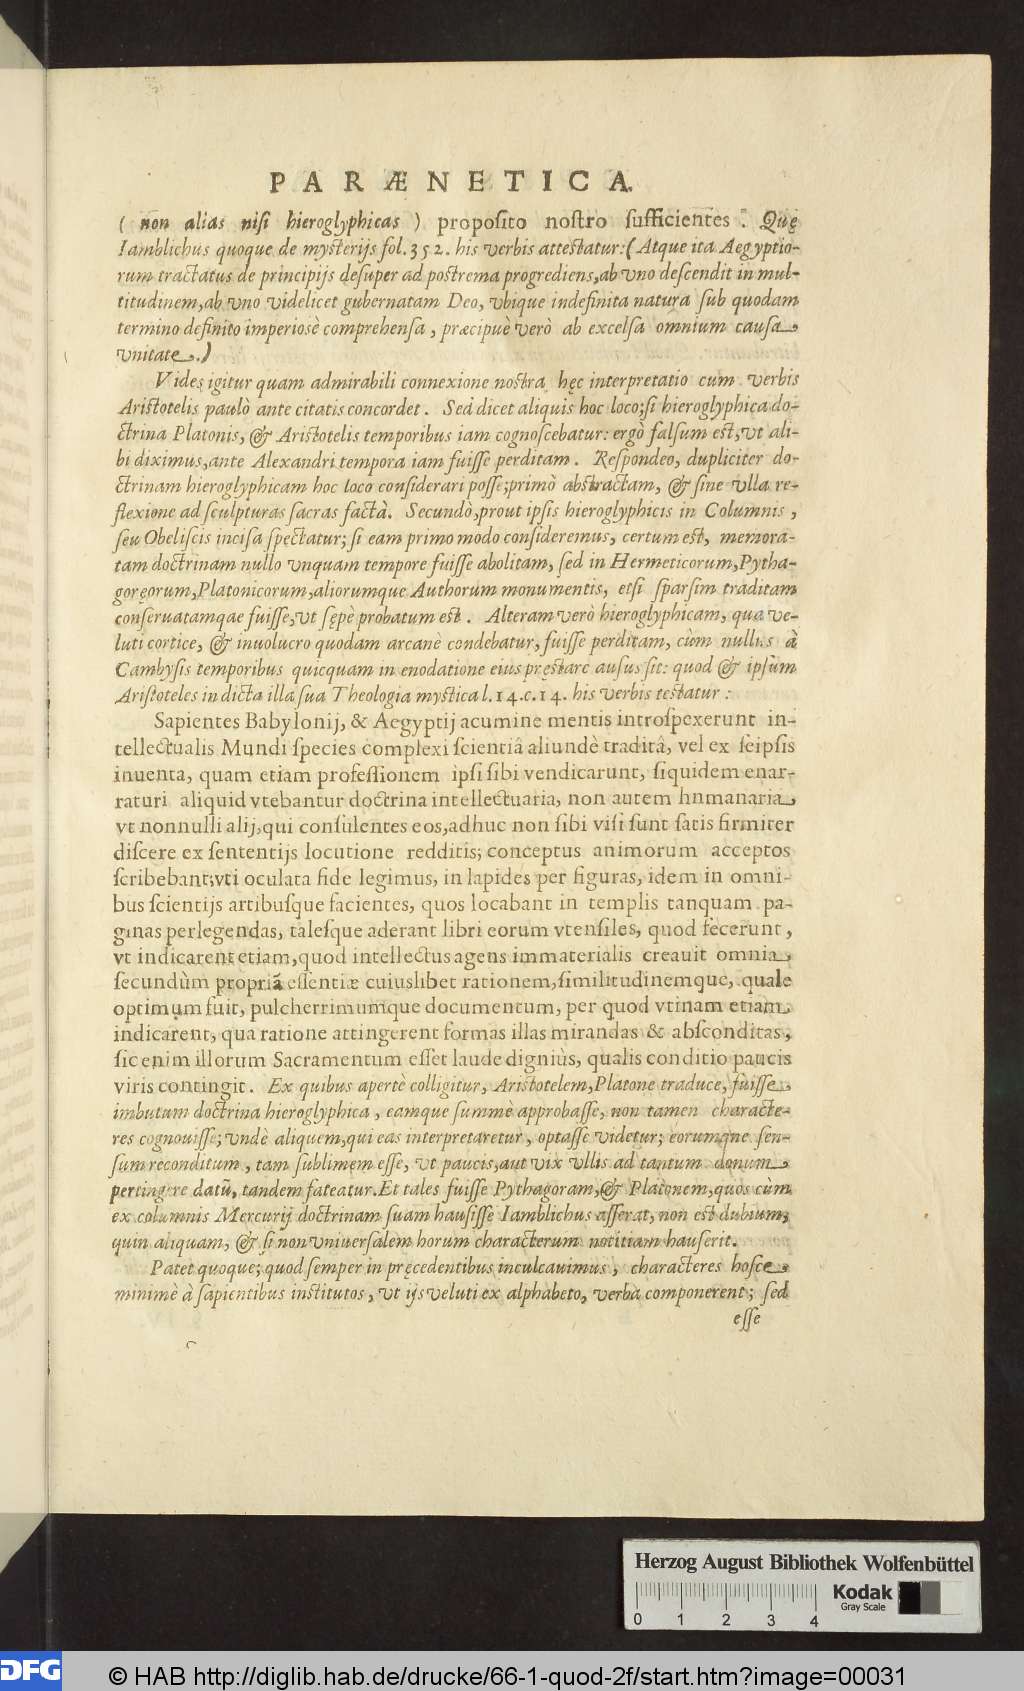 PARÆNETICA.
( non alias nisi hieroglyphicas ) proposito nostro sufficientes. Quę
Iamblichus quoque de mysterijs fol. 352. his verbis attestatur: (Atque ita Aegyptio-
rum tractatus de principijs desuper ad postrema progrediens, ab vno descendit in mul-
titudinem, ab vno videlicet gubernatam Deo, vbique indefinita natura sub quodam
termino definito imperiosè comprehensa, præcipuè verò ab excelsa omnium causa
vnitate.)
Vides igitur quam admirabili connexione nostra hęc interpretatio cum verbis
Aristotelis paulò ante citatis concordet. Sed dicet aliquis hoc loco; si hieroglyphica do-
ctrina Platonis, & Aristotelis temporibus iam cognoscebatur: ergò falsum est, vt ali-
bi diximus, ante Alexandri tempora iam fuisse perditam. Respondeo, dupliciter do-
ctrinam hieroglyphicam hoc loco considerari posse; primò abstractam, & sine vlla re-
flexione ad sculpturas sacras factâ. Secundò, prout ipsis hieroglyphicis in Columnis,
seu Obeliscis incisa spectatur; si eam primo modo consideremus, certum est, memora-
tam doctrinam nullo vnquam tempore fuisse abolitam, sed in Hermeticorum, Pytha-
goręorum, Platonicorum, aliorumque Authorum monumentis, etsi sparsim traditam
conseruatamqae fuisse, vt sępè probatum est. Alteram verò hieroglyphicam, qua ve-
luti cortice, & inuolucro quodam arcanè condebatur, fuisse perditam, cùm nullus à
Cambysis temporibus quicquam in enodatione eius pręstare ausus sit: quod & ipsum
Aristoteles in dicta illa sua Theologia mystica l. 14. c. 14. his verbis testatur:
Sapientes Babylonij, & Aegyptij acumine mentis introspexerunt in-
tellectualis Mundi species complexi scientiâ aliundè traditâ, vel ex seipsis
inuenta, quam etiam professionem ipsi sibi vendicarunt, siquidem enar-
raturi aliquid vtebantur doctrina intellectuaria, non autem hnmanaria
vt nonnulli alij, qui consulentes eos, adhuc non sibi visi sunt satis firmiter
discere ex sententijs locutione redditis; conceptus animorum acceptos
scribebant; vti oculata fide legimus, in lapides per figuras, idem in omni-
bus scientijs artibusque facientes, quos locabant in templis tanquam pa-
ginas perlegendas, talesque aderant libri eorum vtensiles, quod fecerunt,
vt indicarent etiam, quod intellectus agens immaterialis creauit omnia
secundùm propriã essentiæ cuiuslibet rationem, similitudinemque, quale
optimum fuit, pulcherrimumque documentum, per quod vtinam etiam
indicarent, qua ratione attingerent formas illas mirandas & absconditas,
sic enim illorum Sacramentum esset laude digniùs, qualis conditio paucis
viris contingit. Ex quibus apertè colligitur, Aristotelem, Platone traduce, fuisse
imbutum doctrina hieroglyphica, eamque summè approbasse, non tamen characte-
res cognouisse; vndè aliquem, qui eas interpretaretur, optasse videtur; eorumqne sen-
sum reconditum, tam sublimem esse, vt paucis, aut vix vllis ad tantum donum
pertingere datũ, tandem fateatur. Et tales fuisse Pythagoram, & Platonem, quos cùm
ex columnis Mercurij doctrinam suam hausisse Iamblichus asserat, non est dubium,
quin aliquam, & si non vniuersalem horum characterum notitiam hauserit.
Patet quoque; quod semper in pręcedentibus inculcauimus, characteres hosce
minimè à sapientibus institutos, vt ijs veluti ex alphabeto, verba componerent; sed
esse
Herzog August Bibliothek Wolfenbüttel
Kodak
Gray Scale
0 1 2 3 4
DFG © HAB http://diglib.hab.de/drucke/66-1-quod-2f/start.htm?image=00031